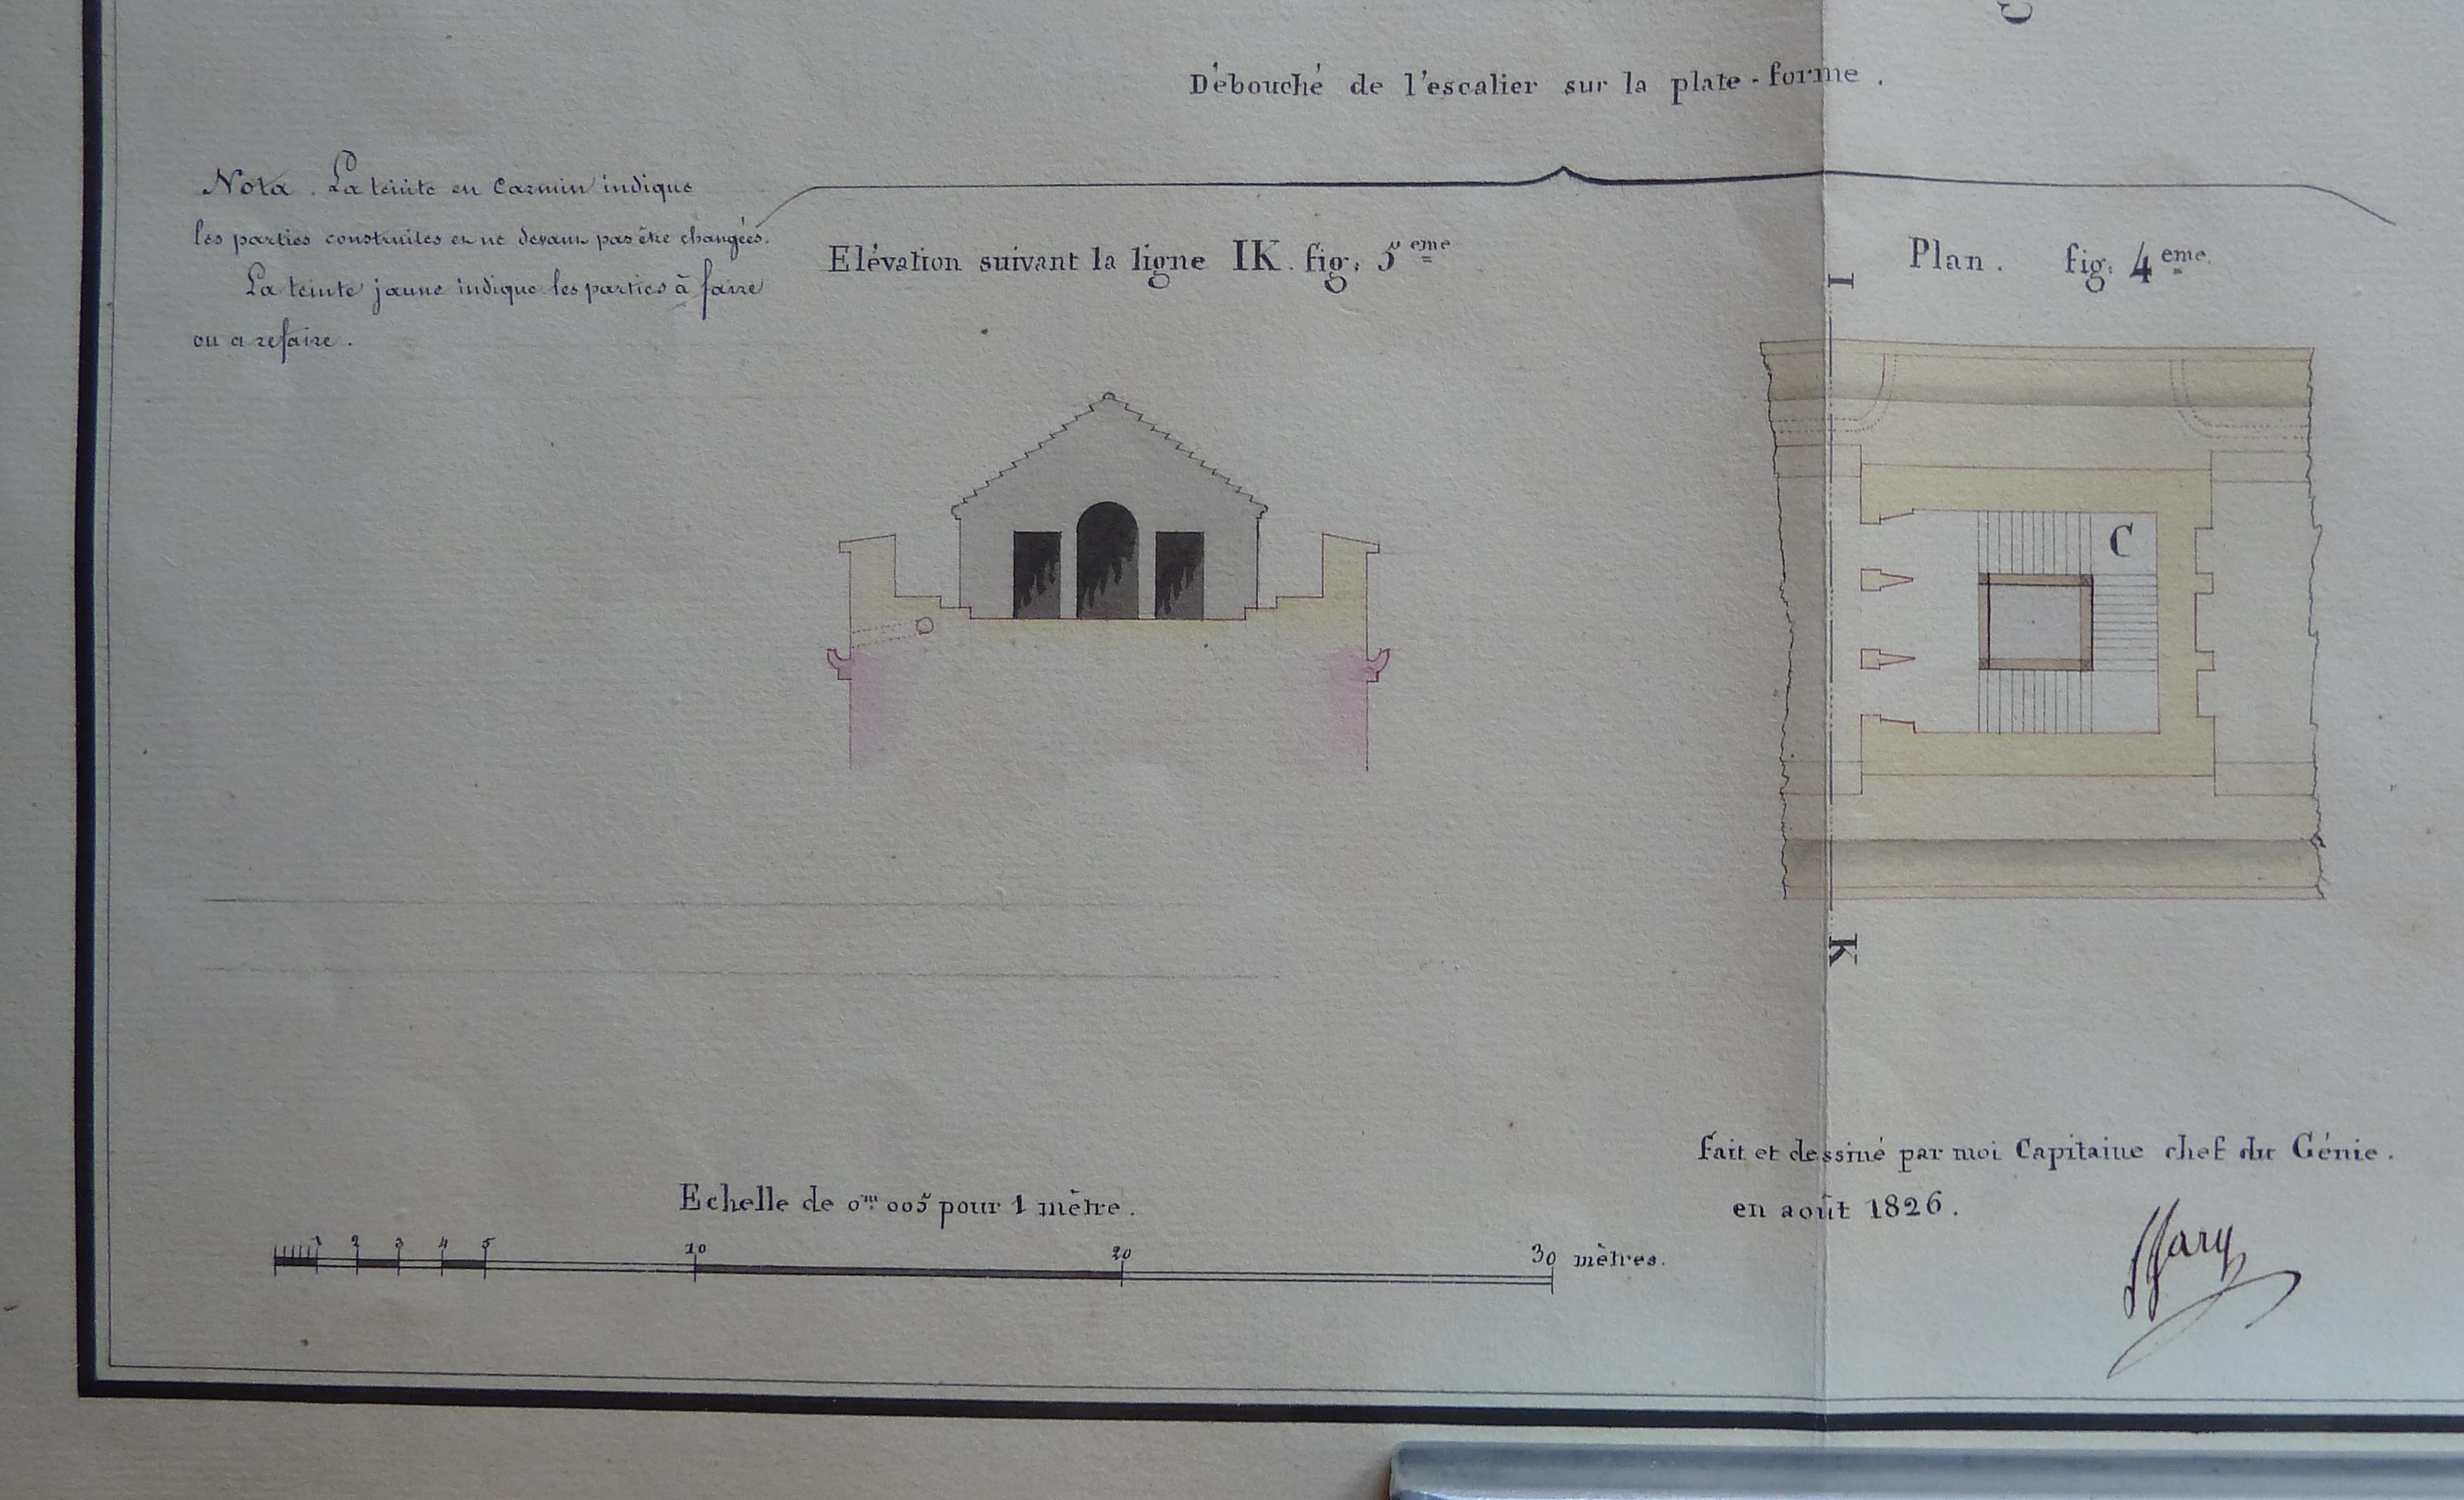 C
Débouché de l'escalier sur la plate-forme.
Nota. La teinte en Carmin indique
les parties construites et ne devant pas être changées.
La teinte jaune indique les parties à faire
ou a refaire.
Elévation suivant la ligne IK. fig: 5eme
Plan. fig: 4eme
I
C
K
fait et dessiné par moi Capitaine chef du Génie.
en août 1826.
Echelle de 0m. 005 pour 1 mètre.
1 2 3 4 5 10 20 30 mètres.